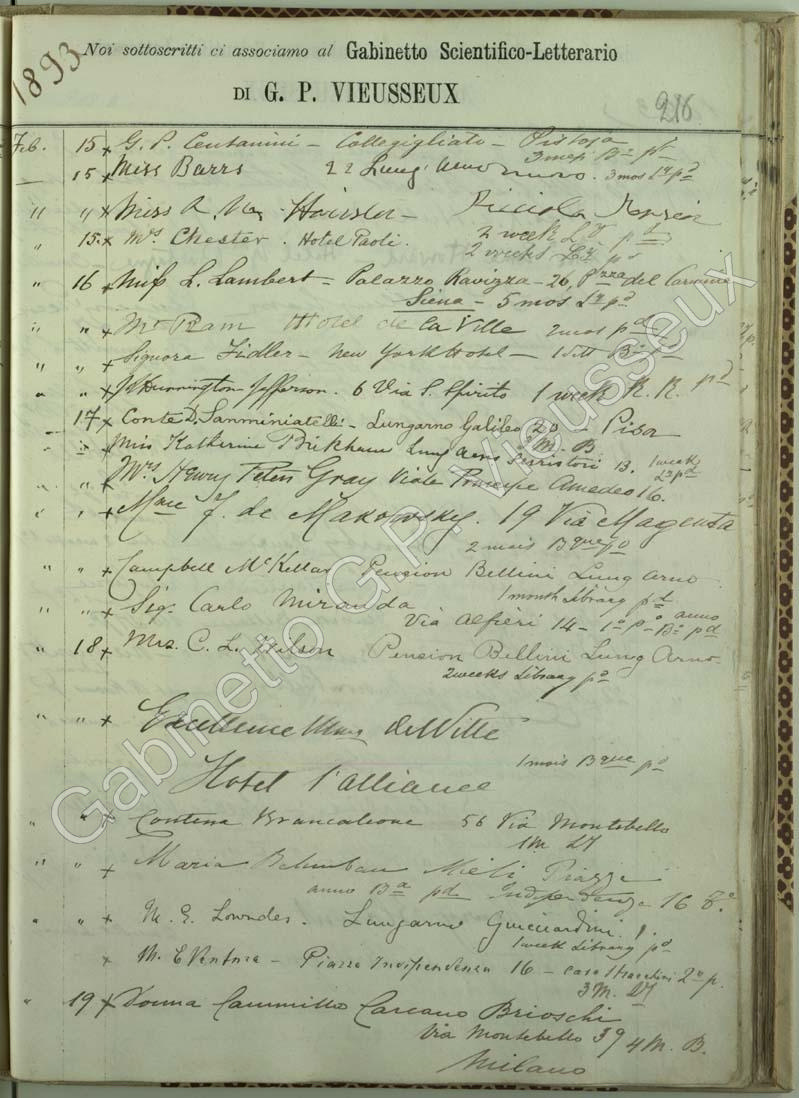 1893
Noi sottoscritti ci associamo al Gabinetto Scientifico-Letterario
DI G. P. VIEUSSEUX
216
Feb. 15 x G. P. Centanini - Collegigliato - Pistoja
3 mesi Bª pt
15 x Miss Barrs 22 Lung' Arno 3 mos pd
" " x Miss R. Piccola
" 15 x Mrs Chester. Hotel Paoli. 2 week pd
2 weeks pd
" 16 x Miss L. Lambert - Palazzo Ravizza - 26, Pzza del Carmine
Siena - 5 mos pd
" " x Mr Ram Hotel de la Ville 2 mos pd
" " x Signora Fidler - New York Hotel -
" " x Jefferson. 6 Via S. Spirito 1 week R. R. pd
17 x Conte D. Sanminiatelli - Lungarno Galileo 20 - Pisa
M. B.
" " Miss Katherine Lung Arno Serristori 13. 1 week
pd
" " Mrs Henry Peters Gray Viale Principe Amedeo 16.
" " x Mme J. de Makovsky. 19 Via Magenta
2 mois Bque pd
" " x Campbell McKellar Pension Bellini Lung Arno
1 month Library pd
" " x Sig. Carlo Miranda
Via Alfieri 14 - 1º pº - anno Bª pd
" 18 x Mrs. C. L. Wilson Pension Bellini Lung Arno
2 weeks Library pd
" " x Excellence de Witte
1 mois Bque pd
Hotel l'alliance
" " x Contessa Brancaleone 56 Via Montebello
1 M.
" " x Maria Mieli Piazza
anno Bª pd Indipendenza 16
" " x M. E. Lowndes. Lungarno Guicciardini 1.
1 week Library pd
x M. E. Ventura - Piazza Indipendenza 16 - casa 2º p.
3 M.
" 19 x Donna Cammilla Carcano Brioschi
Via Montebello 39 4 M. B.
Milano
Gabinetto G.P. Vieusseux